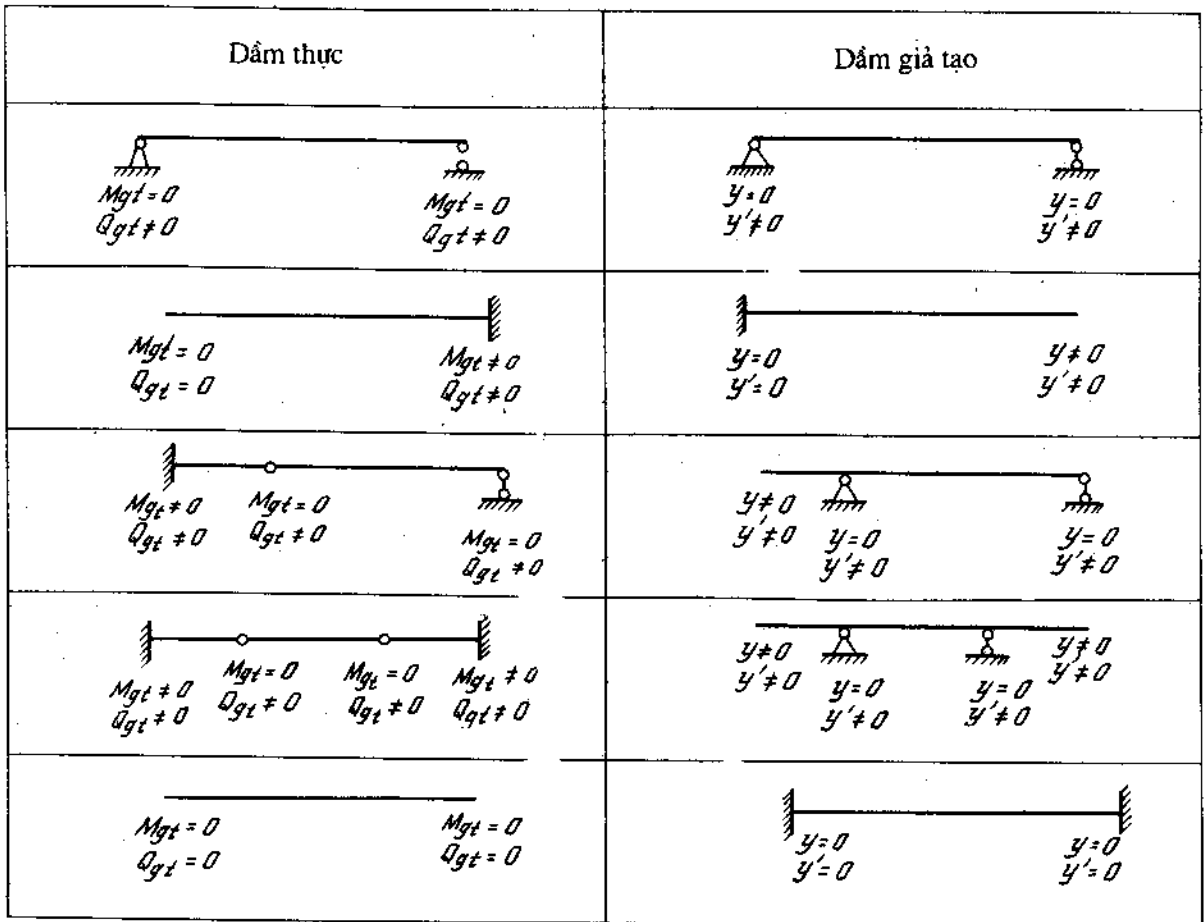 Dầm thực
Dầm giả tạo
Mgt = 0
Qgt ≠ 0
Mgt = 0
Qgt ≠ 0
y = 0
y' ≠ 0
y = 0
y' ≠ 0
Mgt = 0
Qgt = 0
Mgt ≠ 0
Qgt ≠ 0
y = 0
y' = 0
y ≠ 0
y' ≠ 0
Mgt ≠ 0
Qgt ≠ 0
Mgt = 0
Qgt ≠ 0
Mgt = 0
Qgt ≠ 0
y ≠ 0
y' ≠ 0
y = 0
y' ≠ 0
y = 0
y' ≠ 0
Mgt ≠ 0
Qgt ≠ 0
Mgt = 0
Qgt ≠ 0
Mgt = 0
Qgt ≠ 0
Mgt ≠ 0
Qgt ≠ 0
y ≠ 0
y' ≠ 0
y = 0
y' ≠ 0
y = 0
y' ≠ 0
y ≠ 0
y' ≠ 0
Mgt = 0
Qgt = 0
Mgt = 0
Qgt = 0
y = 0
y' = 0
y = 0
y' = 0